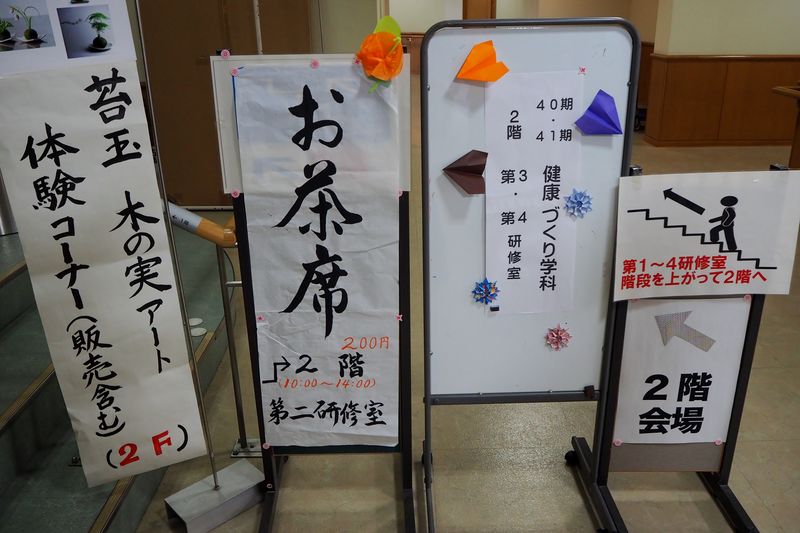 苔玉 木の実アート
体験コーナー(販売含む)
(2F)
お茶席
200円
2階
(10:00～14:00)
第二研修室
40期・41期 健康づくり学科
2階 第3・第4研修室
第1～4研修室
階段を上がって2階へ
2階
会場